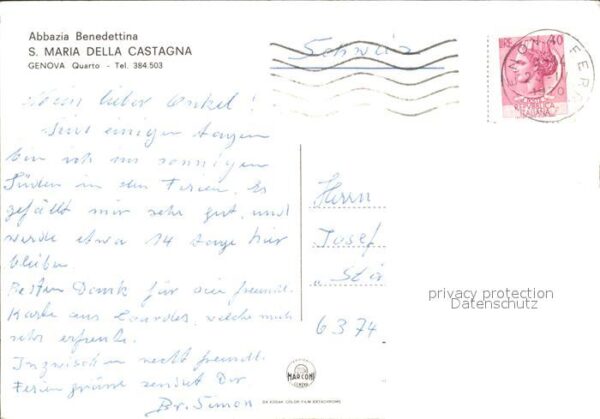 Abbazia Benedettina
S. MARIA DELLA CASTAGNA
GENOVA Quarto - Tel. 384.503
Schweiz
LIRE 40
POSTE
REPUBBLICA
ITALIANA
GENOVA FERR
Mein lieber Onkel!
Seit einigen Tagen
bin ich im sonnigen
Süden in den Ferien. Es
gefällt mir sehr gut, und
werde etwa 14 Tage hier
bleiben.
Besten Dank für die freundl.
Karte aus Lourdes, welche mich
sehr erfreute.
Inzwischen recht freundl.
Feriengrüsse sendet Dir
Br. Simon
Herrn
Josef
6374
privacy protection
Datenschutz
MARCONI
GENOVA
DA KODAK COLOR FILM EKTACHROME